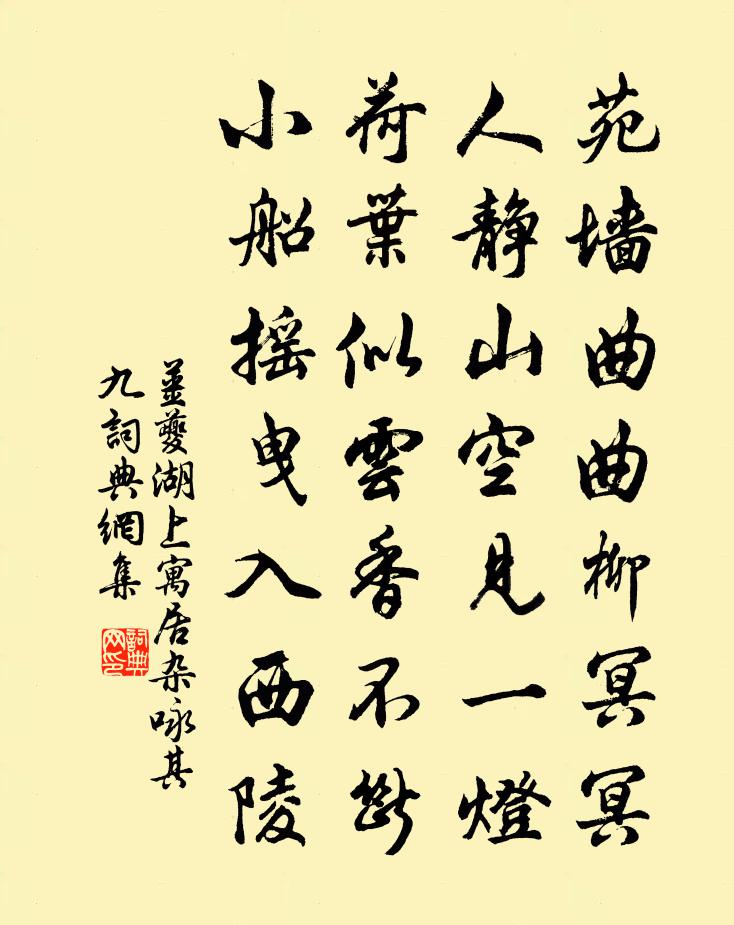 苑墙曲曲柳冥冥
人静山空見一燈
荷葉似雲香不斷
小船摇曳入西陵
姜夔湖上寓居杂咏其
九詞典網集
詞典网印